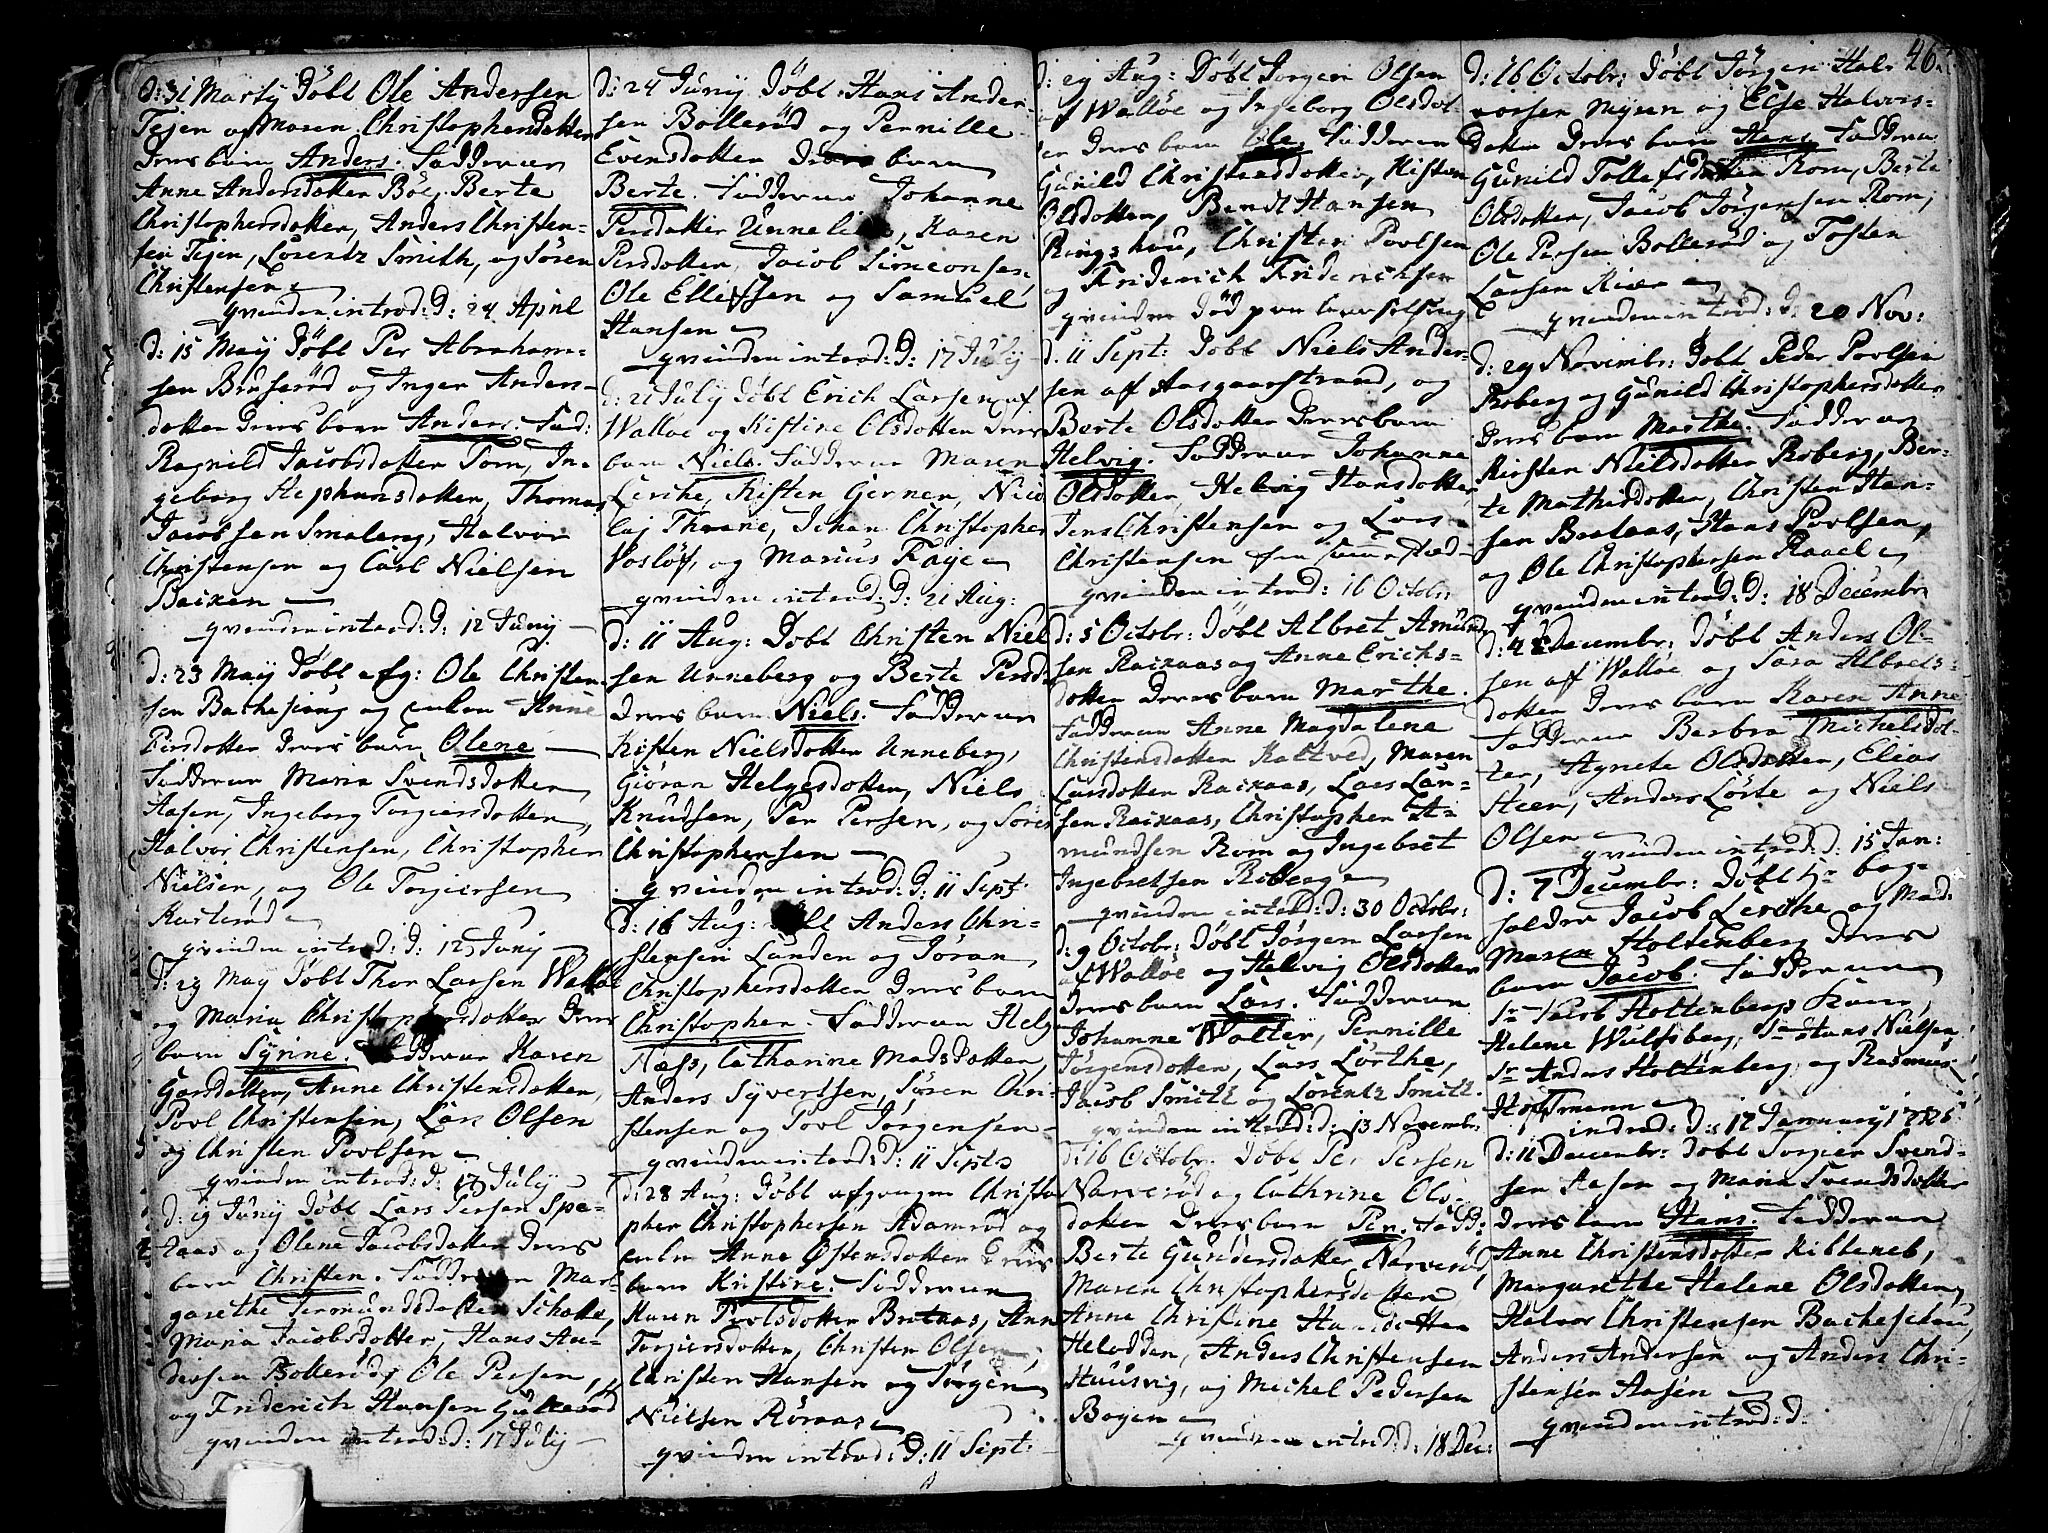 d: 31 Marty Döbt Ole Andersen
Tejen og Maren Christophersdotter
Deres barn Anders. Fadderne
Anne Andersdotter Böe, Berte
Christophersdotter, Anders Christen-
sen Tejen, Lorentz Smith, og Sören
Christensen
qvinden introd: D: 24 April
d: 15 Maij Döbt Per Abraham-
sen Bruserød og Inger Anders-
dotter Deres barn Anders. Fad:
Ragnild Jacobsdotter Tom, In-
geborg Stephensdotter, Thomas
Jacobsen Smaberg, Halvor
Christensen og Carl Nielsen
Backen
qvinden introd: D: 12 Junij
d: 23 Maij Döbt afg: Ole Christen-
sen Bacheskoug og enken Anne
Persdotter Deres barn Olene
Fadderne Maria Svendsdotter
Aasen, Ingeborg Torgiersdotter,
Halvor Christensen, Christopher
Nielsen, og Ole Torgiersen
qvinden introd: D: 12 Junij
d: 29 Maij Döbt Thor Larsen Walløe
og Maria Christophersdotter Deres
barn Synne. Fadderne Karen
Anne Christensdotter,
Povl Christensen, Lars Olsen
og Christen Povlsen
qvinden introd: D: 17 July
d: 19 Junij Döbt Lars Iversen Spe-
raas og Olene Jacobsdotter Deres
barn Christen. Fadderne Mar-
garethe Germundsdotter
Maria Jacobsdotter, Hans An-
dersen Bollerød, Ole Persen,
og Friderich Hansen
qvinden introd: d: 17 July
d: 24 Junij Döbt Hans Ander-
sen Bollerød og Pernille
Evensdotter Deres barn
Berte. Fadderne Johanne
Persdotter Karen
Persdotter, Jacob Simeonsen,
Ole Ellefsen og Samuel
Hansen
qvinden introd: D: 17 Julij
d: 21 July Döbt Erich Larsen af
Walløe og Kistine Olsdotter Deres
barn Niels. Fadderne Maren
Lerche, Kisten Gerner, Nico-
laj Thrane, Johan Christopher
og Marius Faye
qvinden introd: D: 21 Aug:
d: 11 Aug: Döbt Christen Niel-
sen Unneberg og Berte Persd:
Deres barn Niels. Fadderne
Kisten Nielsdotter Unneberg,
Giöran Helgesdotter, Niels
Knudsen, Per Persen, og Sören
Christophersen
qvinden introd: D: 11 Sept:
d: 16 Aug: Döbt Anders Chri-
stensen Lunden og Jöran
Christophersdotter Deres barn
Christopher. Fadderne Helg
Næss, Catharine Madsdotter,
Anders Syvertsen, Sören Chri-
stensen og Povl Jörgensen
qvinden introd: D: 11 Septs
d: 28 Aug: Döbt afgangen Christo-
pher Christophersen Adamrød og
enken Anne Östensdotter Deres
barn Kistine. Fadderne
Karen Povlsdotter Brekaas, Anne
Torgiersdotter, Christen Olsen,
Christen Hansen og Jörgen
Nielsen Röraas
qvinden introd: D: 11 Sept:
d: 29 Aug: Döbt Jorgen Olsen
af Walløe og Ingeborg Olsdot-
ter Deres barn Ole. Fadderne
Gunild Christensdotter, Kisten
Olsdotter, Bendt Hansen
Ringshou, Christen Povlsen
og Friderich Friderichsen
qvinden död paa barselseng
d. 11 Sept: Döbt Niels Ander-
sen aff Aasgaarstrand, og
Berte Olsdotter Deres barn
Helvig. Fadderne Johanne
Olsdotter, Helvig Hansdotter
Jens Christensen og Lars
Christensen
qvinden introd: 16 Octobr:
d: 5 Octobr: Döbt Albret Amund-
sen Raixaas og Anne Erichs-
dotter Deres barn Marthe.
Fadderne Anne Magdalene
Christensdotter Kaltved, Maren
Larsdotter Raixaas, Lars Lar-
sen Raixaas, Christopher A-
mundsen Rom og Ingebret
Ingebretsen Roberg
qvinden introd: d: 30 Octobr:
d: 9 Octobr: Döbt Jörgen Larsen
af Walløe og Hellvig Olsdotter
Deres barn Lars. Fadderne
Johanne Wolter, Pernille
Jörgensdotter, Lars Lörthe,
Jacob Smith og Lorentz Smith.
qvinden introd: d: 13 Novembr:
d: 16 Octobr: Döbt Per Persen
Narverød og Cathrine Ols-
dotter Deres barn Per. Fadd:
Berte Gundersdotter Narverød,
Maren Christophersdotter
Anne Christine Hansdotter
Anders Christensen
Huusvig, og Michel Pedersen
Bogen
qvinden introd: d: 18 Dec:
46.
d: 16 Octobr: Döbt Jörgen Hal-
vorsen Myren og Else Halvors-
dotter Deres barn Hans. Fadderne
Gunild Tollefsdotter Rom, Berte
Olsdotter, Jacob Jörgensen Rom,
Ole Persen Bollerød og Tosten
Larsen Kiær
qvinden introd: d: 20 Nov:
d: 29 Novembr: Döbt Peder Povlsen
Roberg og Gunild Christophersdotter
Deres barn Marthe. Fadderne
Kirsten Nielsdotter Roberg, Ber-
te Mathisdotter, Christen Han-
sen Brekaas, Hans Povlsen,
og Ole Christophersen Raael
qvinden introd: D: 18 Decembr
d: 4 Decembr: Döbt Anders Ol-
sen aff Walløe og Sara Albrets-
dotter Deres barn Karen Anne
Fadderne Barbra Michelsdot-
ter, Agnete Olsdotter, Elias
Steen, Anders Lörte og Niels
Olsen
qvinden introd: d: 15 Jan:
d: 7 Decembr: Döbt Hr bog-
holder Jacob Lerche og Mad:
Maren Holtenberg Deres
barn Jacob. Fadderne
Sr Jacob Holtenbergs Kone,
Helene Wulfsberg, Sr Hans Nielsen,
Sr Anders Holtenberg, og Rasmus
Hoffmann
introd: d: 17 January 1725
d: 11 Decembr: Döbt Torgier Svend-
sen Aasen og Maria Svendsdotter
Deres barn Hans. Fadderne
Anne Christensdotter
Margarethe Helene Olsdotter,
Halvor Christensen Bacheschou,
Anders Andersen og Anders Chri-
stensen Aasen
qvinden introd: d: